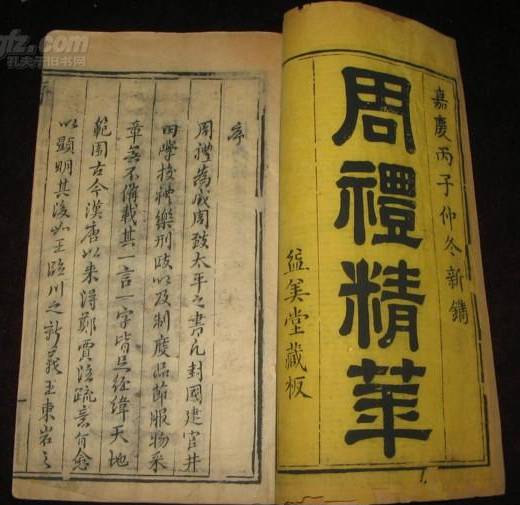 嘉慶丙子仲冬新鐫
周禮精華
美堂藏板
序
周禮為成周致太平之書凡封國建官井
田學校禮樂刑政以及制度品節服物采
章無不備載其一言一字皆足經緯天地
範圍古今漢唐以來得鄭賈注疏意旨愈
以顯明其後如王臨川之新義王東岩之
fz.com
孔夫子旧书网